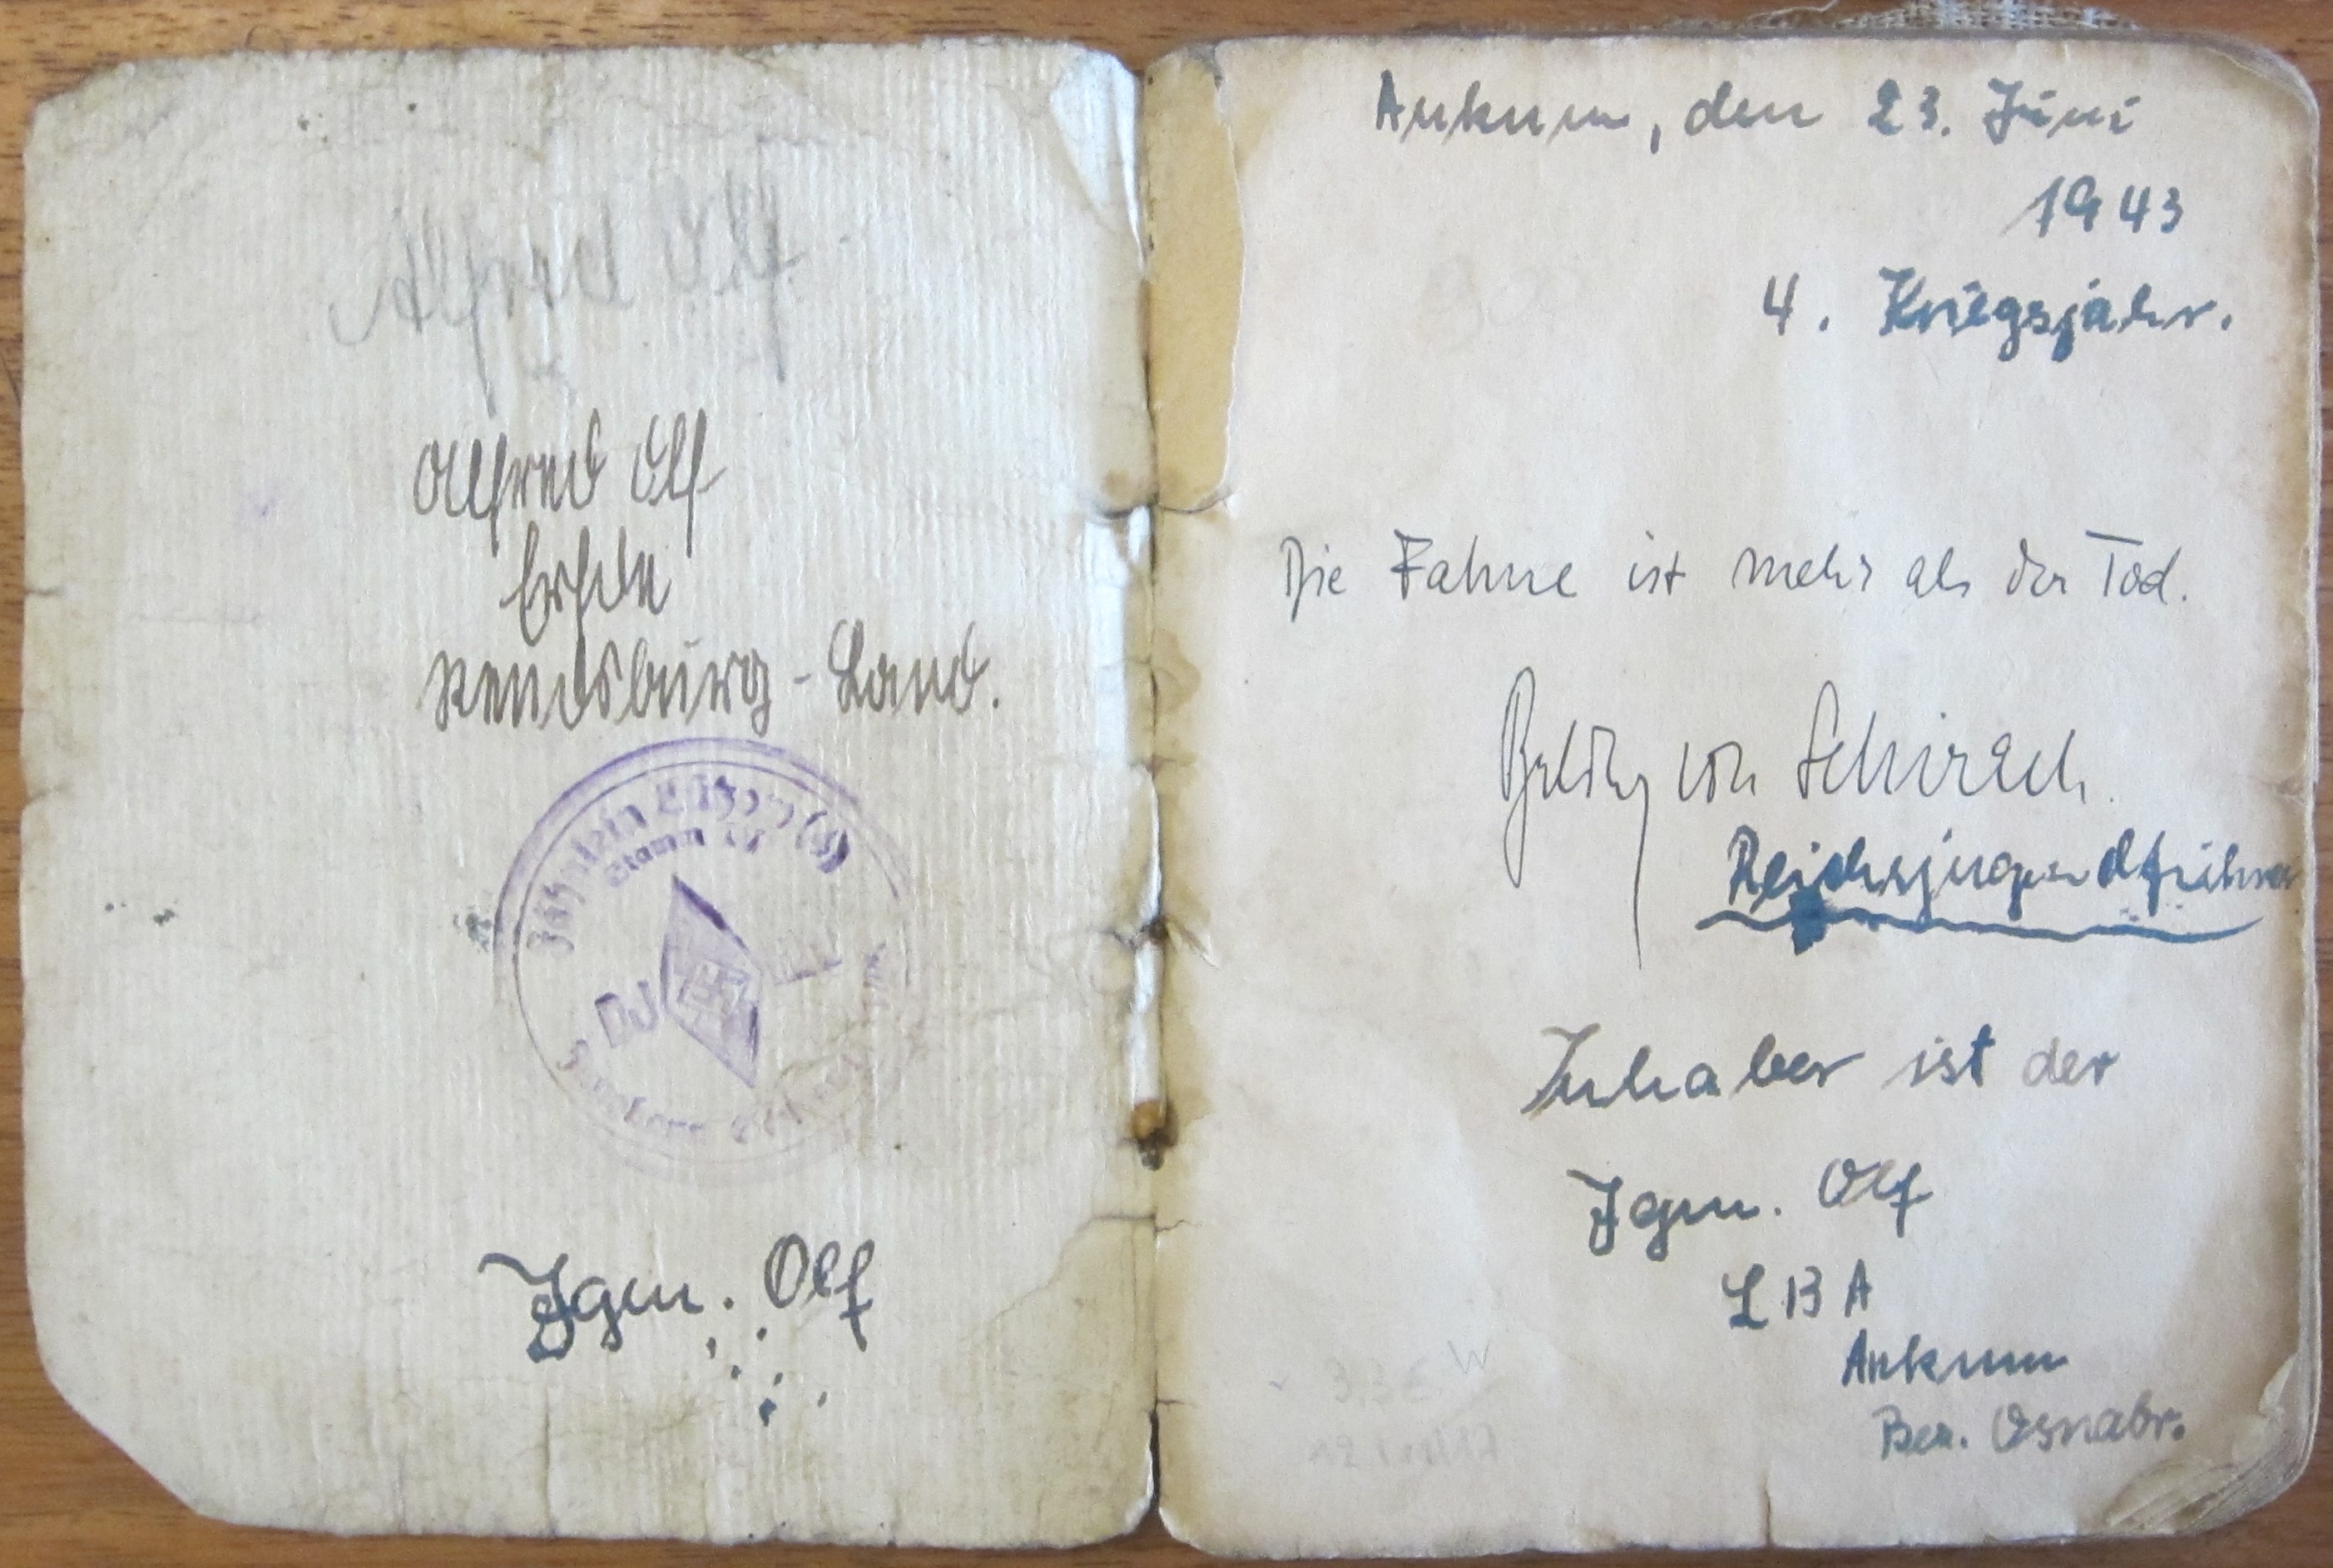 Alfred Olf
Alfred Olf
Erfde
Rendsburg-Land.
Fähnlein Lützow
Stamm
DJ
Jgm. Olf
Ankum, den 23. Juni
1943
4. Kriegsjahr.
Die Fahne ist mehr als der Tod.
Baldur von Schirach.
Reichsjugendführer
Inhaber ist der
Jgm. Olf
LBA
Ankum
Bez. Osnabr.